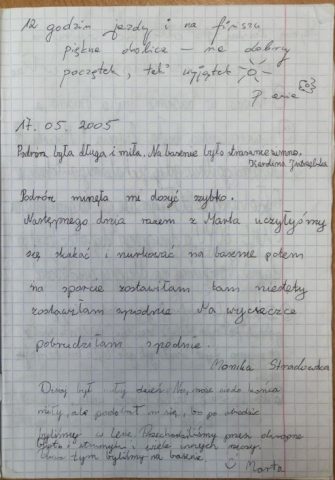 12 godzin jazdy i na finszu
piękne okolice – na dobry
początek, tek wyjątek
P. ania
17.05.2005
Podroż była długa i miła. Na basenie było strasznie zimno.
Karolina
Podróż minęła mi dosyć szybko.
Następnego dnia razem z Marta uczyłyśmy
się skakać i nurkować na basenie potem
na sporcie zostawiłam tam niestety
zostawiłam spodnie. Na wycieczce
pobrudziłam spodnie.
Monika Stradowska
Dzisaj był miły dzień. No, może nieco końca
miły, ale podobał mi się, bo po obiedzie
byliśmy w lesie. Przechodziliśmy przez
błota i strumyki i wiele innych rzeczy.
tym byliśmy na basenie.
Marta